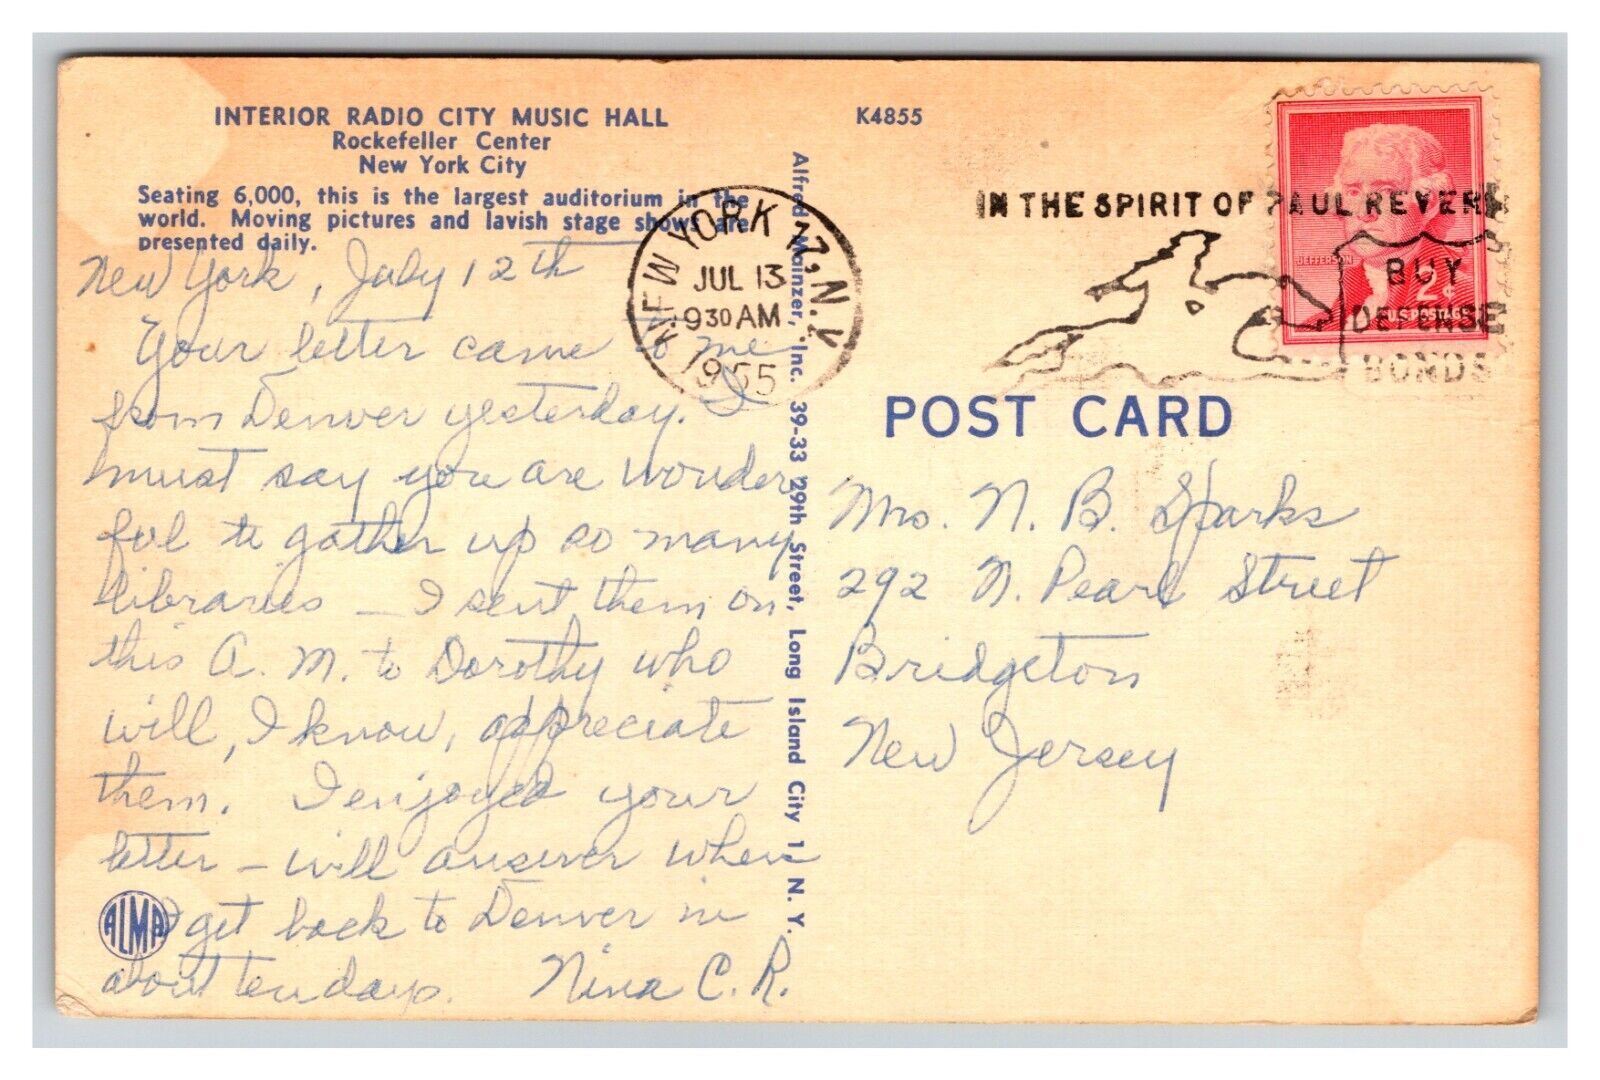 INTERIOR RADIO CITY MUSIC HALL
Rockefeller Center
New York City
Seating 6,000, this is the largest auditorium in the
world. Moving pictures and lavish stage shows are
presented daily.
New York, July 12th
Your letter came to me
from Denver yesterday. I
must say you are wonder
ful to gather up so many
libraries — I sent them on
this A. M. to Dorothy who
will, I know, appreciate
them. I enjoyed your
letter — will answer when
I get back to Denver in
about ten days. Nina C. R.
ALMA
Alfred Mainzer, Inc. 39-33 29th Street, Long Island City 1, N. Y.
K4855
NEW YORK 17, N.Y.
JUL 13
9 30 AM
1955
IN THE SPIRIT OF PAUL REVERE
BUY
DEFENSE
BONDS
JEFFERSON
2¢
U.S. POSTAGE
POST CARD
Mrs. N. B. Sparks
292 N. Pearl Street
Bridgeton
New Jersey